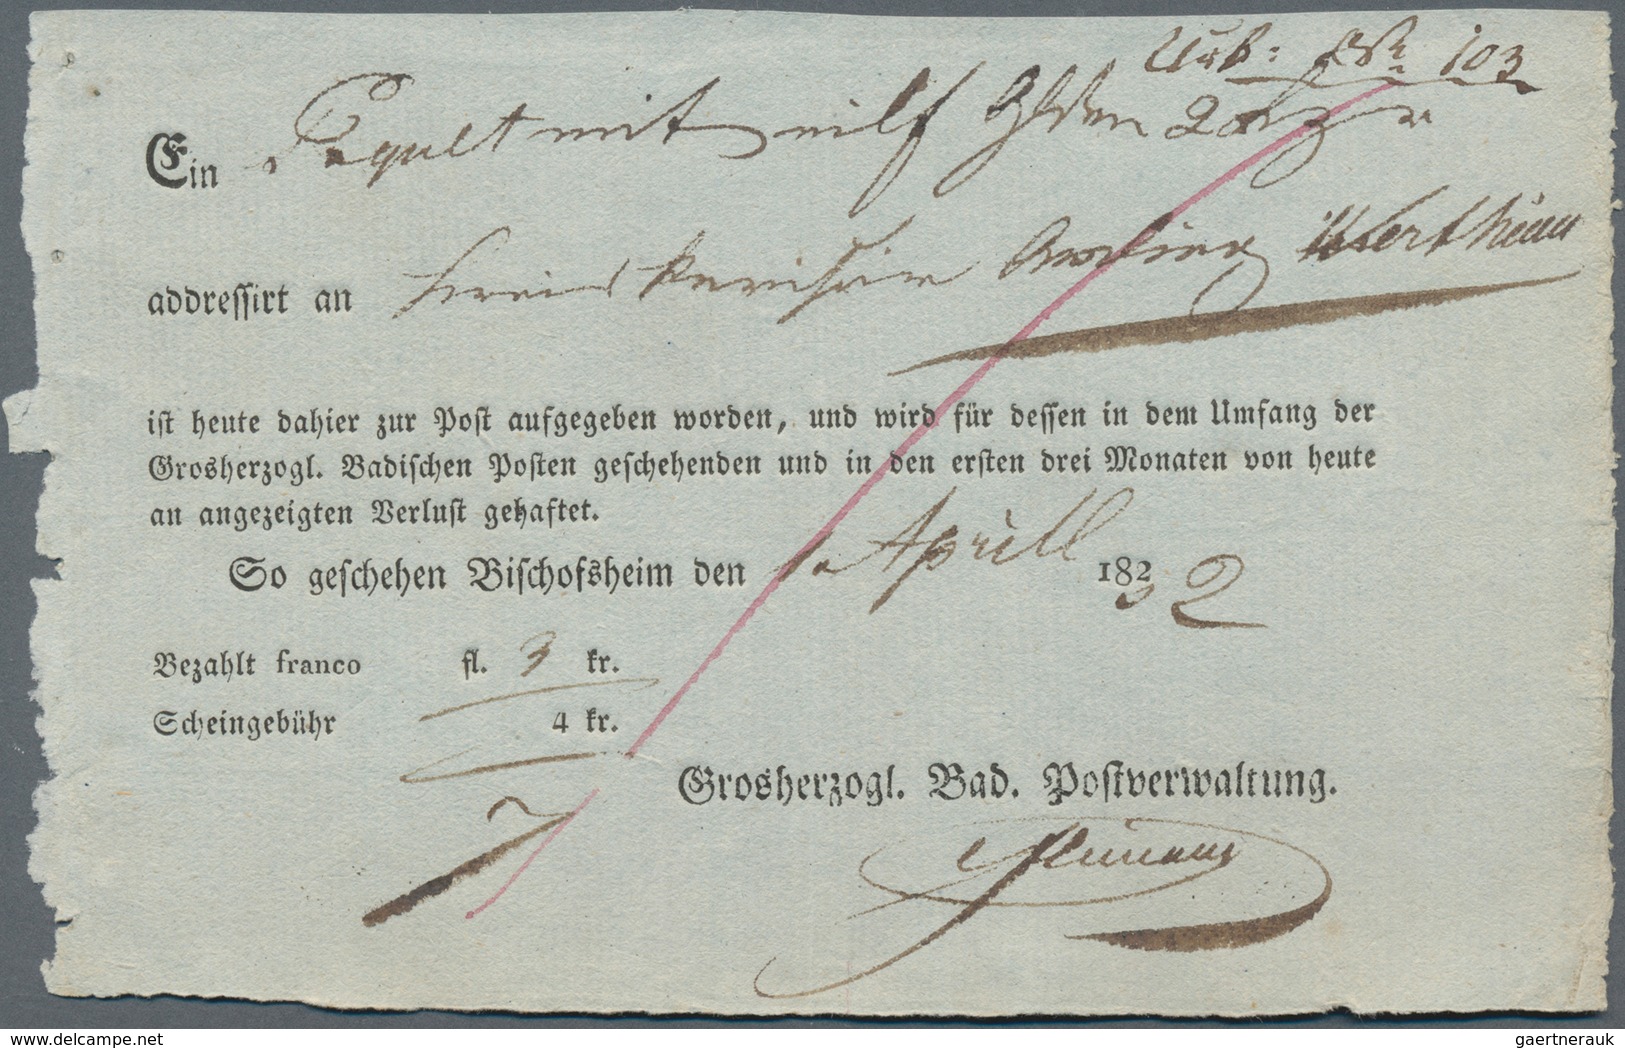 Urk: № 103
Ein Paquet mit eilf Gulden
addressirt an Wertheim
ist heute dahier zur Post aufgegeben worden, und wird für dessen in dem Umfang der
Grosherzogl. Badischen Posten geschehenden und in den ersten drei Monaten von heute
an angezeigten Verlust gehaftet.
So geschehen Bischofsheim den 1. Aprill 1832
Bezahlt franco fl. 3 kr.
Scheingebühr 4 kr.
7
Grosherzogl. Bad. Postverwaltung.
www.delcampe.net
gaertnerauk